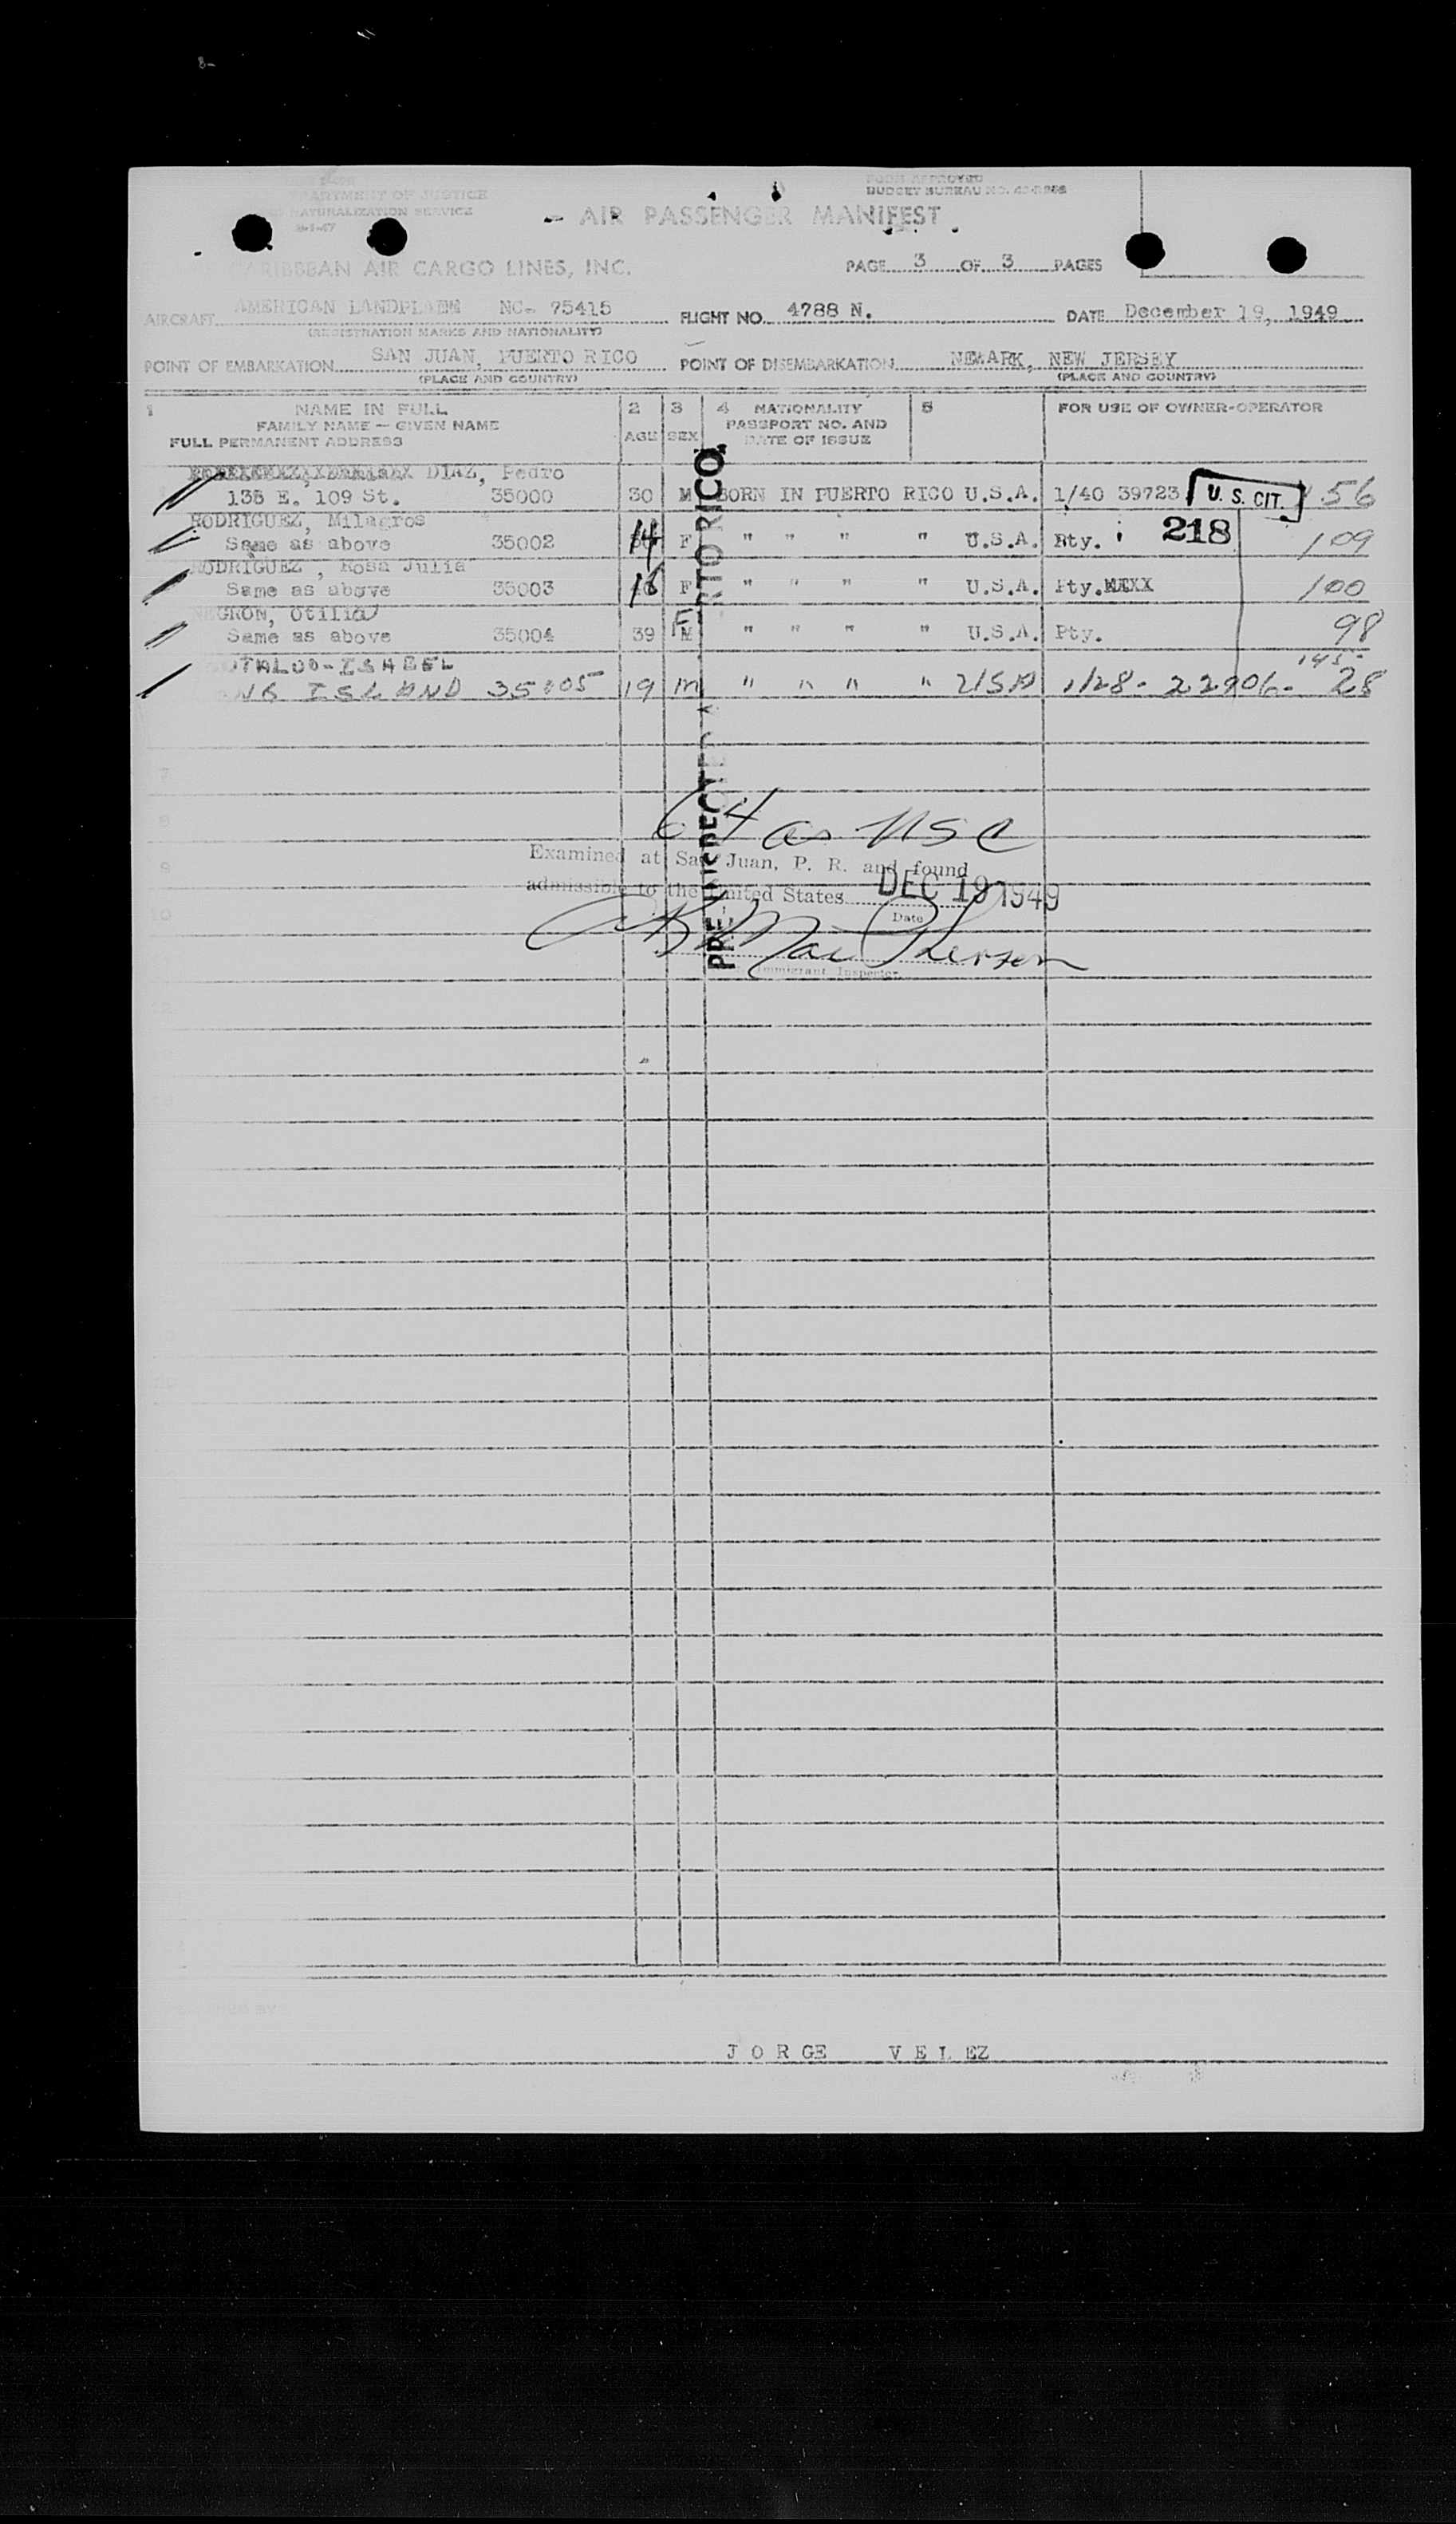 FORM APPROVED
DEPARTMENT OF JUSTICE
BUDGET BUREAU NO.
NATURALIZATION SERVICE
AIR PASSENGER MANIFEST
CARIBBEAN AIR CARGO LINES, INC.
PAGE 3 OF 3 PAGES
AIRCRAFT AMERICAN LANDPLANE NC- 75415 FLIGHT NO. 4788 N. DATE December 19, 1949
(REGISTRATION MARKS AND NATIONALITY)
POINT OF EMBARKATION SAN JUAN, PUERTO RICO POINT OF DISEMBARKATION NEWARK, NEW JERSEY
(PLACE AND COUNTRY) (PLACE AND COUNTRY)
1 NAME IN FULL 2 3 4 NATIONALITY 5 FOR USE OF OWNER-OPERATOR
FAMILY NAME — GIVEN NAME AGE SEX PASSPORT NO. AND
FULL PERMANENT ADDRESS DATE OF ISSUE
DIAZ, Pedro
135 E. 109 St. 35000 30 M BORN IN PUERTO RICO U.S.A. 1/40 39723 U. S. CIT. 156
RODRIGUEZ, Milagros
Same as above 35002 14 F " " " " U.S.A. Pty. 218 109
RODRIGUEZ, Rosa Julia
Same as above 35003 16 F " " " " U.S.A. Pty. 100
NEGRON, Otilia
Same as above 35004 39 F " " " " U.S.A. Pty. 98
ISABEL 145
ISLAND 35005 19 M " " " " USA 1/28- 22906- 28
PRE INSPECTED PUERTO RICO
7
8
64 as USC
9
Examined at San Juan, P. R. and found
admissible to the United States DEC 19 1949
10
Date
MacPherson
Immigrant Inspector
12
JORGE VELEZ